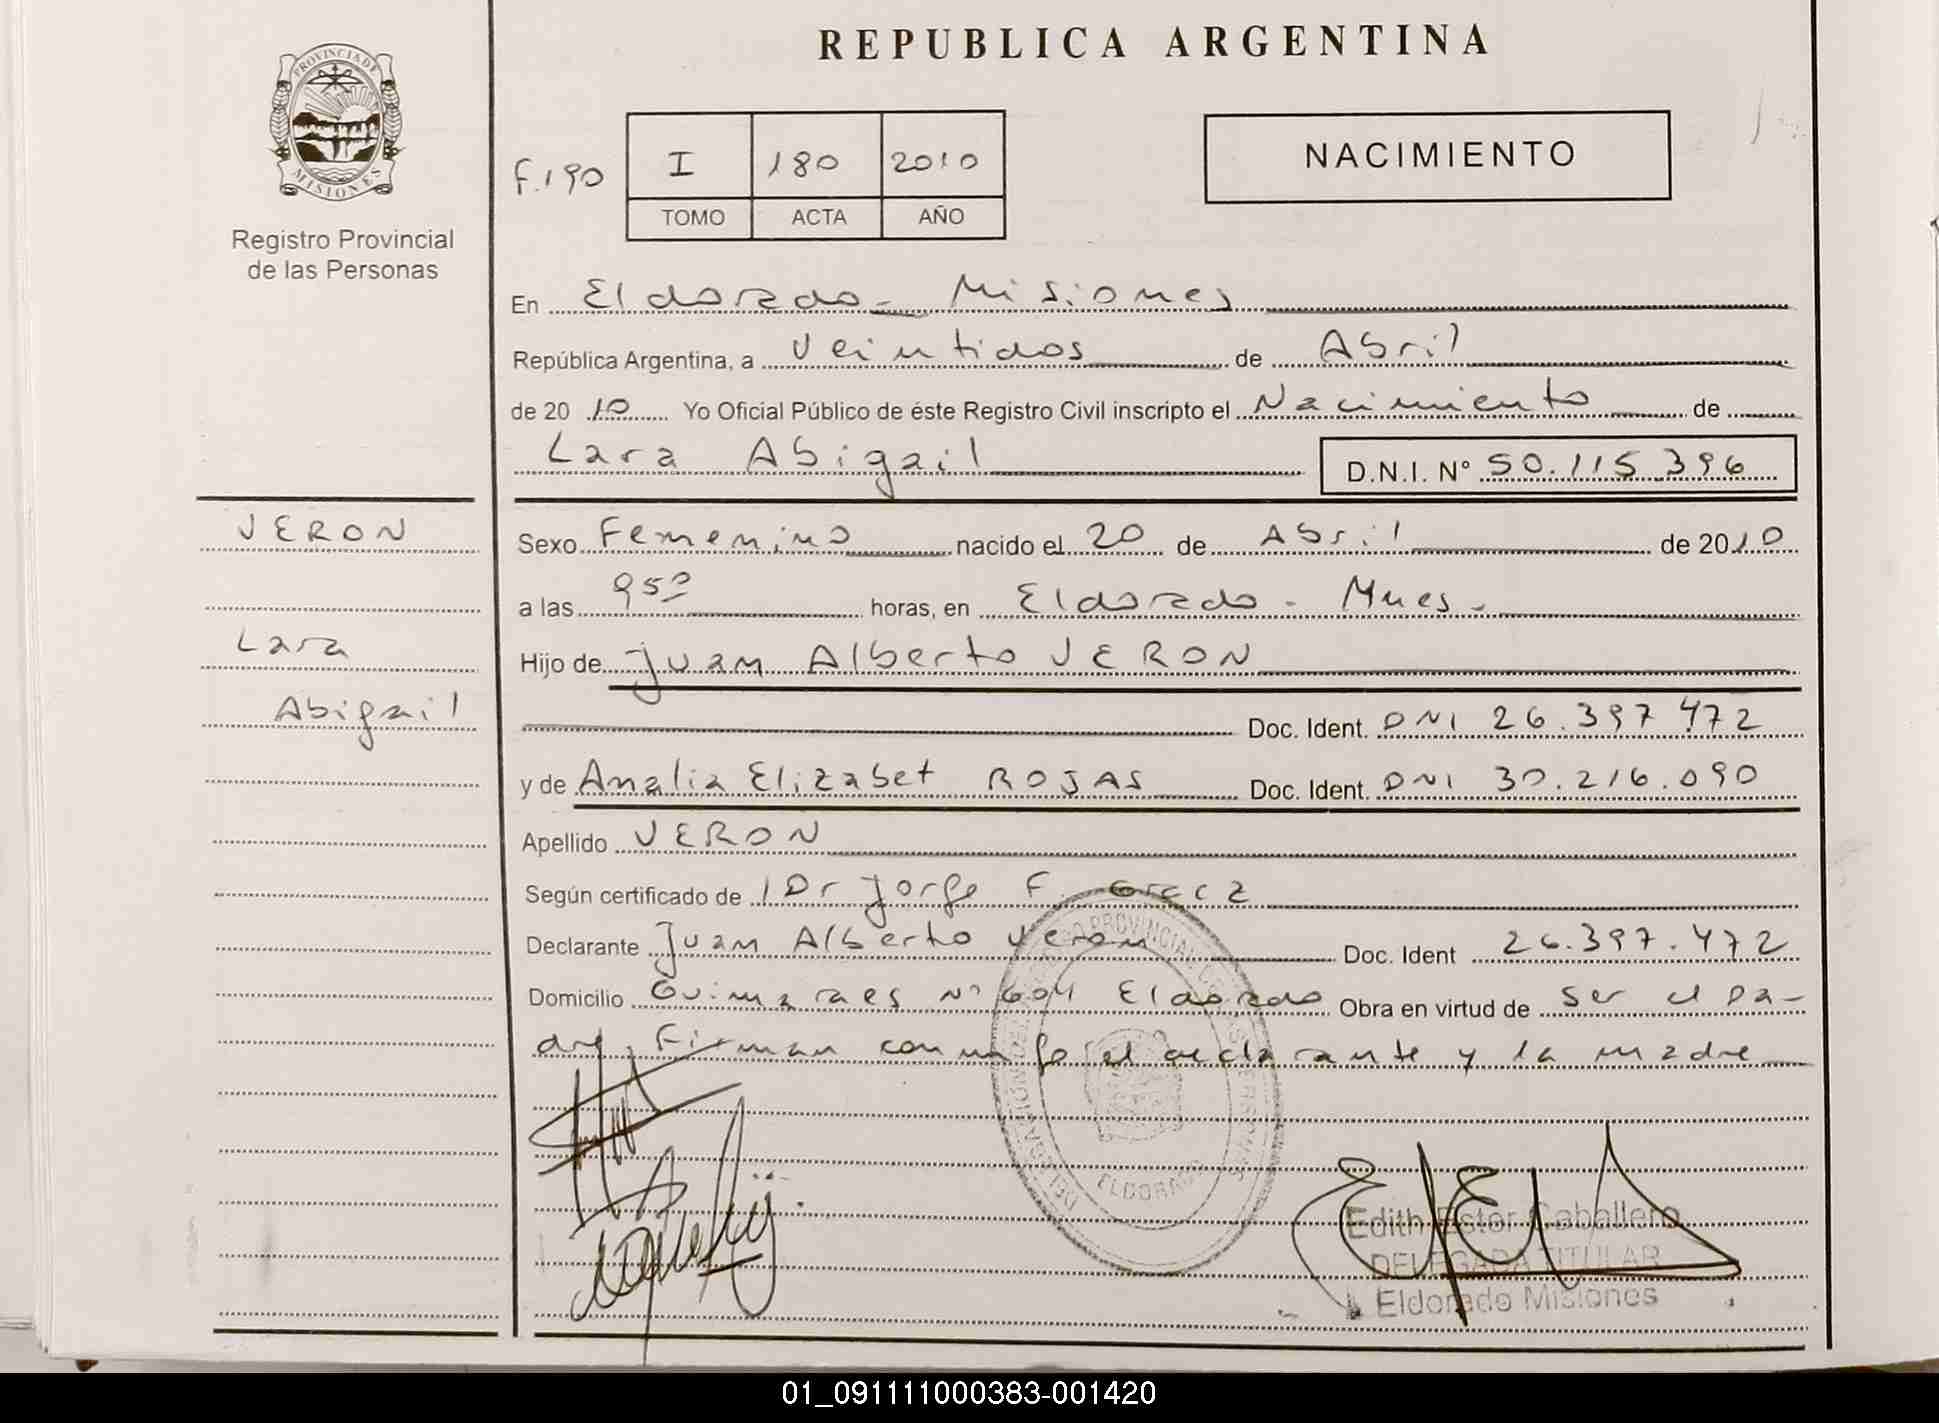 REPUBLICA ARGENTINA
PROVINCIA DE
MISIONES
Registro Provincial
de las Personas
F.190
I 180 2010
TOMO ACTA AÑO
NACIMIENTO
En Eldorado - Misiones
República Argentina, a Veintidos de Abril
de 2010 Yo Oficial Público de éste Registro Civil inscripto el Nacimiento de
Lara Abigail D.N.I. N° 50.115.396
VERON
Lara
Abigail
Sexo Femenino nacido el 20 de Abril de 2010
a las 950 horas, en Eldorado - Mnes -
Hijo de Juan Alberto VERON
Doc. Ident. DNI 26.397.472
y de Analia Elizabet ROJAS Doc. Ident. DNI 30.216.090
Apellido VERON
Según certificado de Dr Jorge F.
Declarante Juan Alberto Veron Doc. Ident 26.397.472
Domicilio Guimaraes N° 604 Eldorado Obra en virtud de ser el pa-
dre, Firman conmigo el declarante y la madre
ELDORADO
Edith Ester Caballero
DELEGADA TITULAR
Eldorado Misiones
01_091111000383-001420